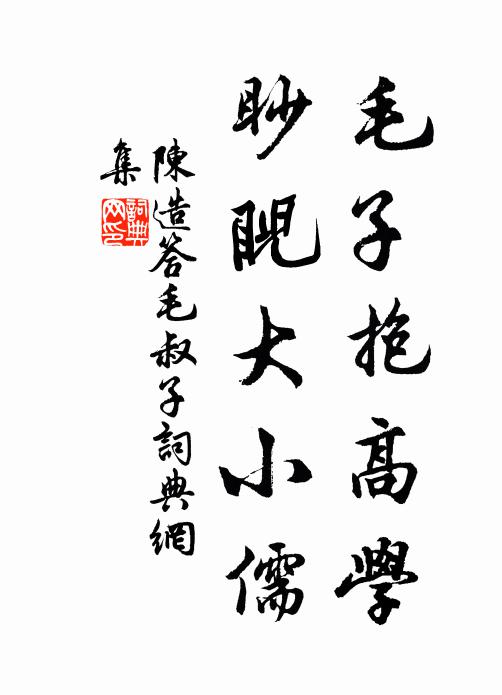 毛子抱高學
眇睨大小儒
陳造答毛叔子詞典網
集
詞典
网印